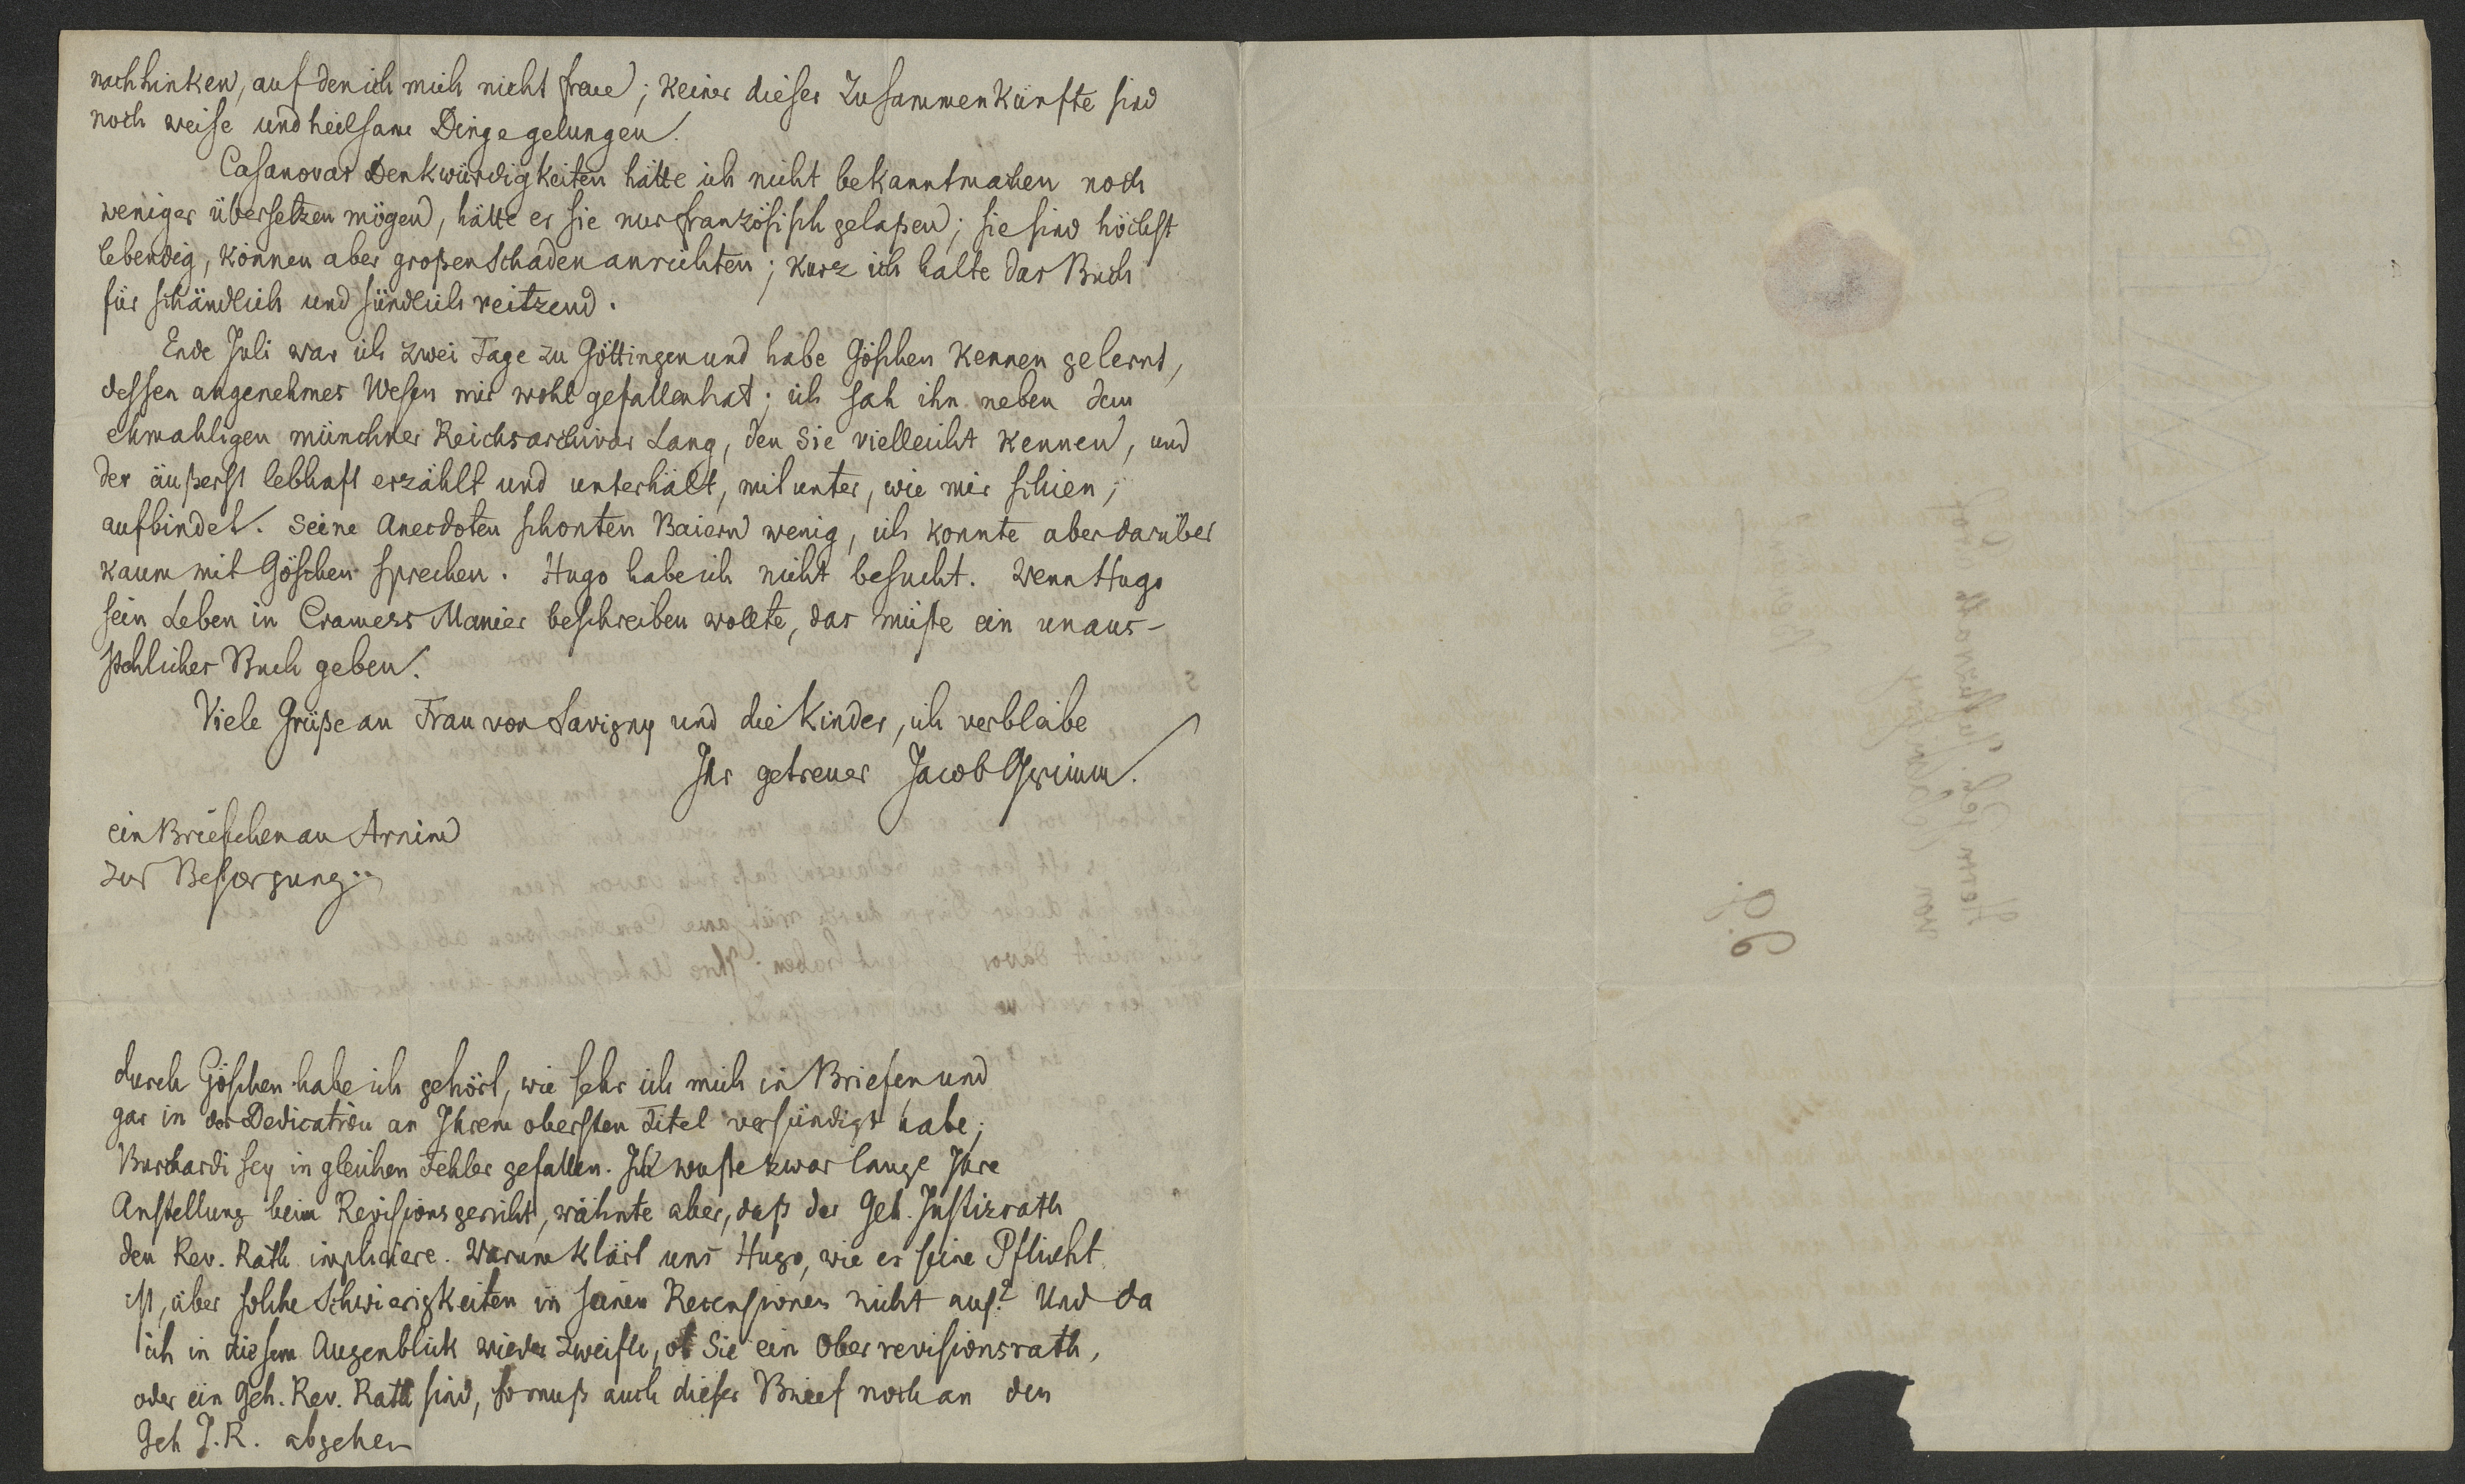 nachhinken, auf den ich mich nicht freue; keiner dieser Zusammenkünfte sind
noch weise und heilsame Dinge gelungen.
Casanovas Denkwürdigkeiten hätte ich nicht bekanntmachen noch
weniger übersetzen mögen, hätte er sie nur französisch gelaßen; sie sind höchst
lebendig, können aber großen Schaden anrichten; kurz ich halte das Buch
für schändlich und sündlich reitzend.
Ende Juli war ich zwei Tage zu Göttingen und habe Göschen kennen gelernt,
dessen angenehmes Wesen mir wohl gefallen hat; ich sah ihn neben dem
ehmahligen münchner Reichsarchivar Lang, den Sie vielleicht kennen, und
der äußerst lebhaft erzählt und unterhält, mitunter, wie mir schien,
aufbindet. Seine Anecdoten schonten Baiern wenig, ich konnte aber darüber
kaum mit Göschen sprechen. Hugo habe ich nicht besucht. Wenn Hugo
sein Leben in Cramers Manier beschreiben wollte, das müste ein unaus-
stehliches Buch geben.
Viele Grüße an Frau von Savigny und die Kinder, ich verbleibe
Ihr getreuer Jacob Grimm.
ein Briefchen an Arnim
zur Besorgung
durch Göschen habe ich gehört, wie sehr ich mich in Briefen und
gar in der Dedication an Ihrem obersten Titel versündigt habe;
Burchardi sey in gleichen Fehler gefallen. Ich wuste zwar lange Ihre
Anstellung beim Revisionsgericht, wähnte aber, daß der Geh. Justizrath
den Rev. Rath impliciere. Warum klärt uns Hugo, wie es seine Pflicht
ist, über solche Schwierigkeiten in seinen Recensionen nicht auf? Und da
ich in diesem Augenblick wieder zweifle, ob Sie ein Oberrevisionsrath,
oder ein Geh. Rev. Rath sind, so muß auch dieser Brief noch an den
Geh J. R. abgehen